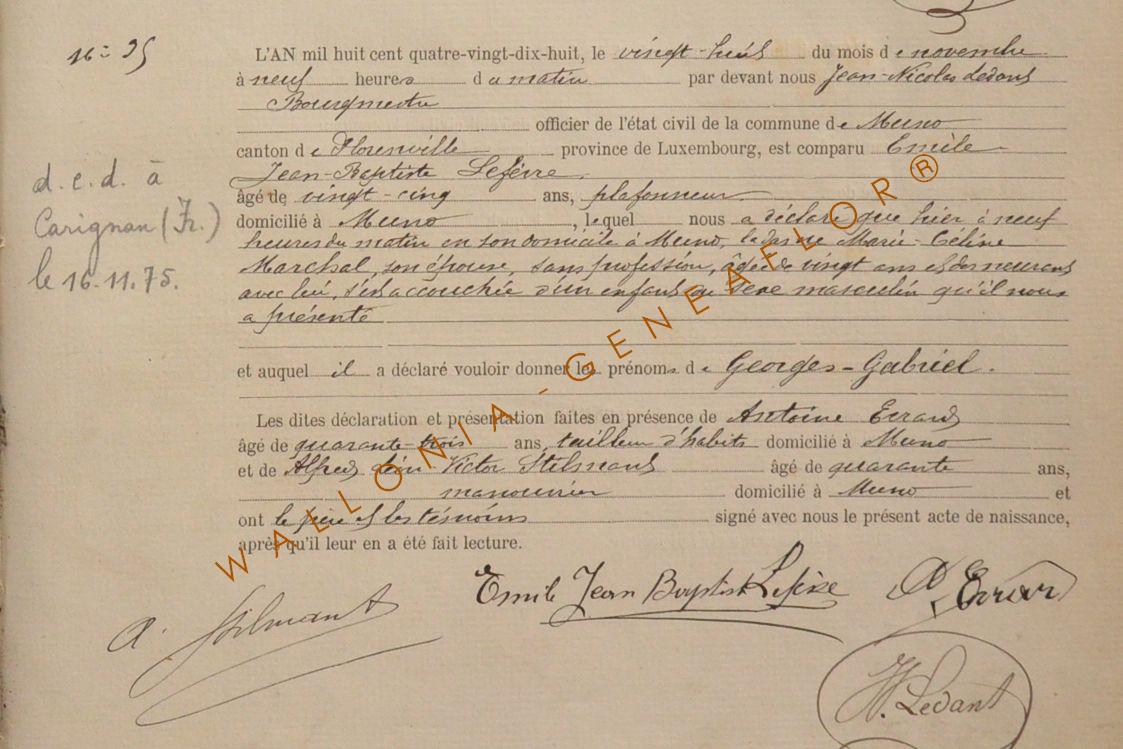 16 = 35
L'AN mil huit cent quatre-vingt-dix-huit, le vingt-huit du mois de novembre
à neuf heures du matin par devant nous Jean-Nicolas Ledant
Bourgmestre
officier de l'état civil de la commune de Muno
canton de Florenville province de Luxembourg, est comparu Emile
Jean-Baptiste Lefèvre,
âgé de vingt-cinq ans, plafonneur
domicilié à Muno, lequel nous a déclaré que hier à neuf
heures du matin en son domicile à Muno, la dame Marie-Céline
Marchal, son épouse, sans profession, âgée de vingt ans et demeurant
avec lui, s'est accouchée d'un enfant du sexe masculin qu'il nous
a présenté
et auquel il a déclaré vouloir donner les prénoms de Georges-Gabriel.
Les dites déclaration et présentation faites en présence de Antoine Errard
âgé de quarante-trois ans, tailleur d'habits domicilié à Muno
et de Alfred Léon Victor Stilmant âgé de quarante ans,
manouvrier domicilié à Muno et
ont le père et les témoins signé avec nous le présent acte de naissance,
après qu'il leur en a été fait lecture.
d.c.d. à
Carignan (Fr.)
le 16.11.75.
Emile Jean Baptist Lefèvre
A. Stilmant
A Errard
N. Ledant
WALLONIA-GENEAFLOR®